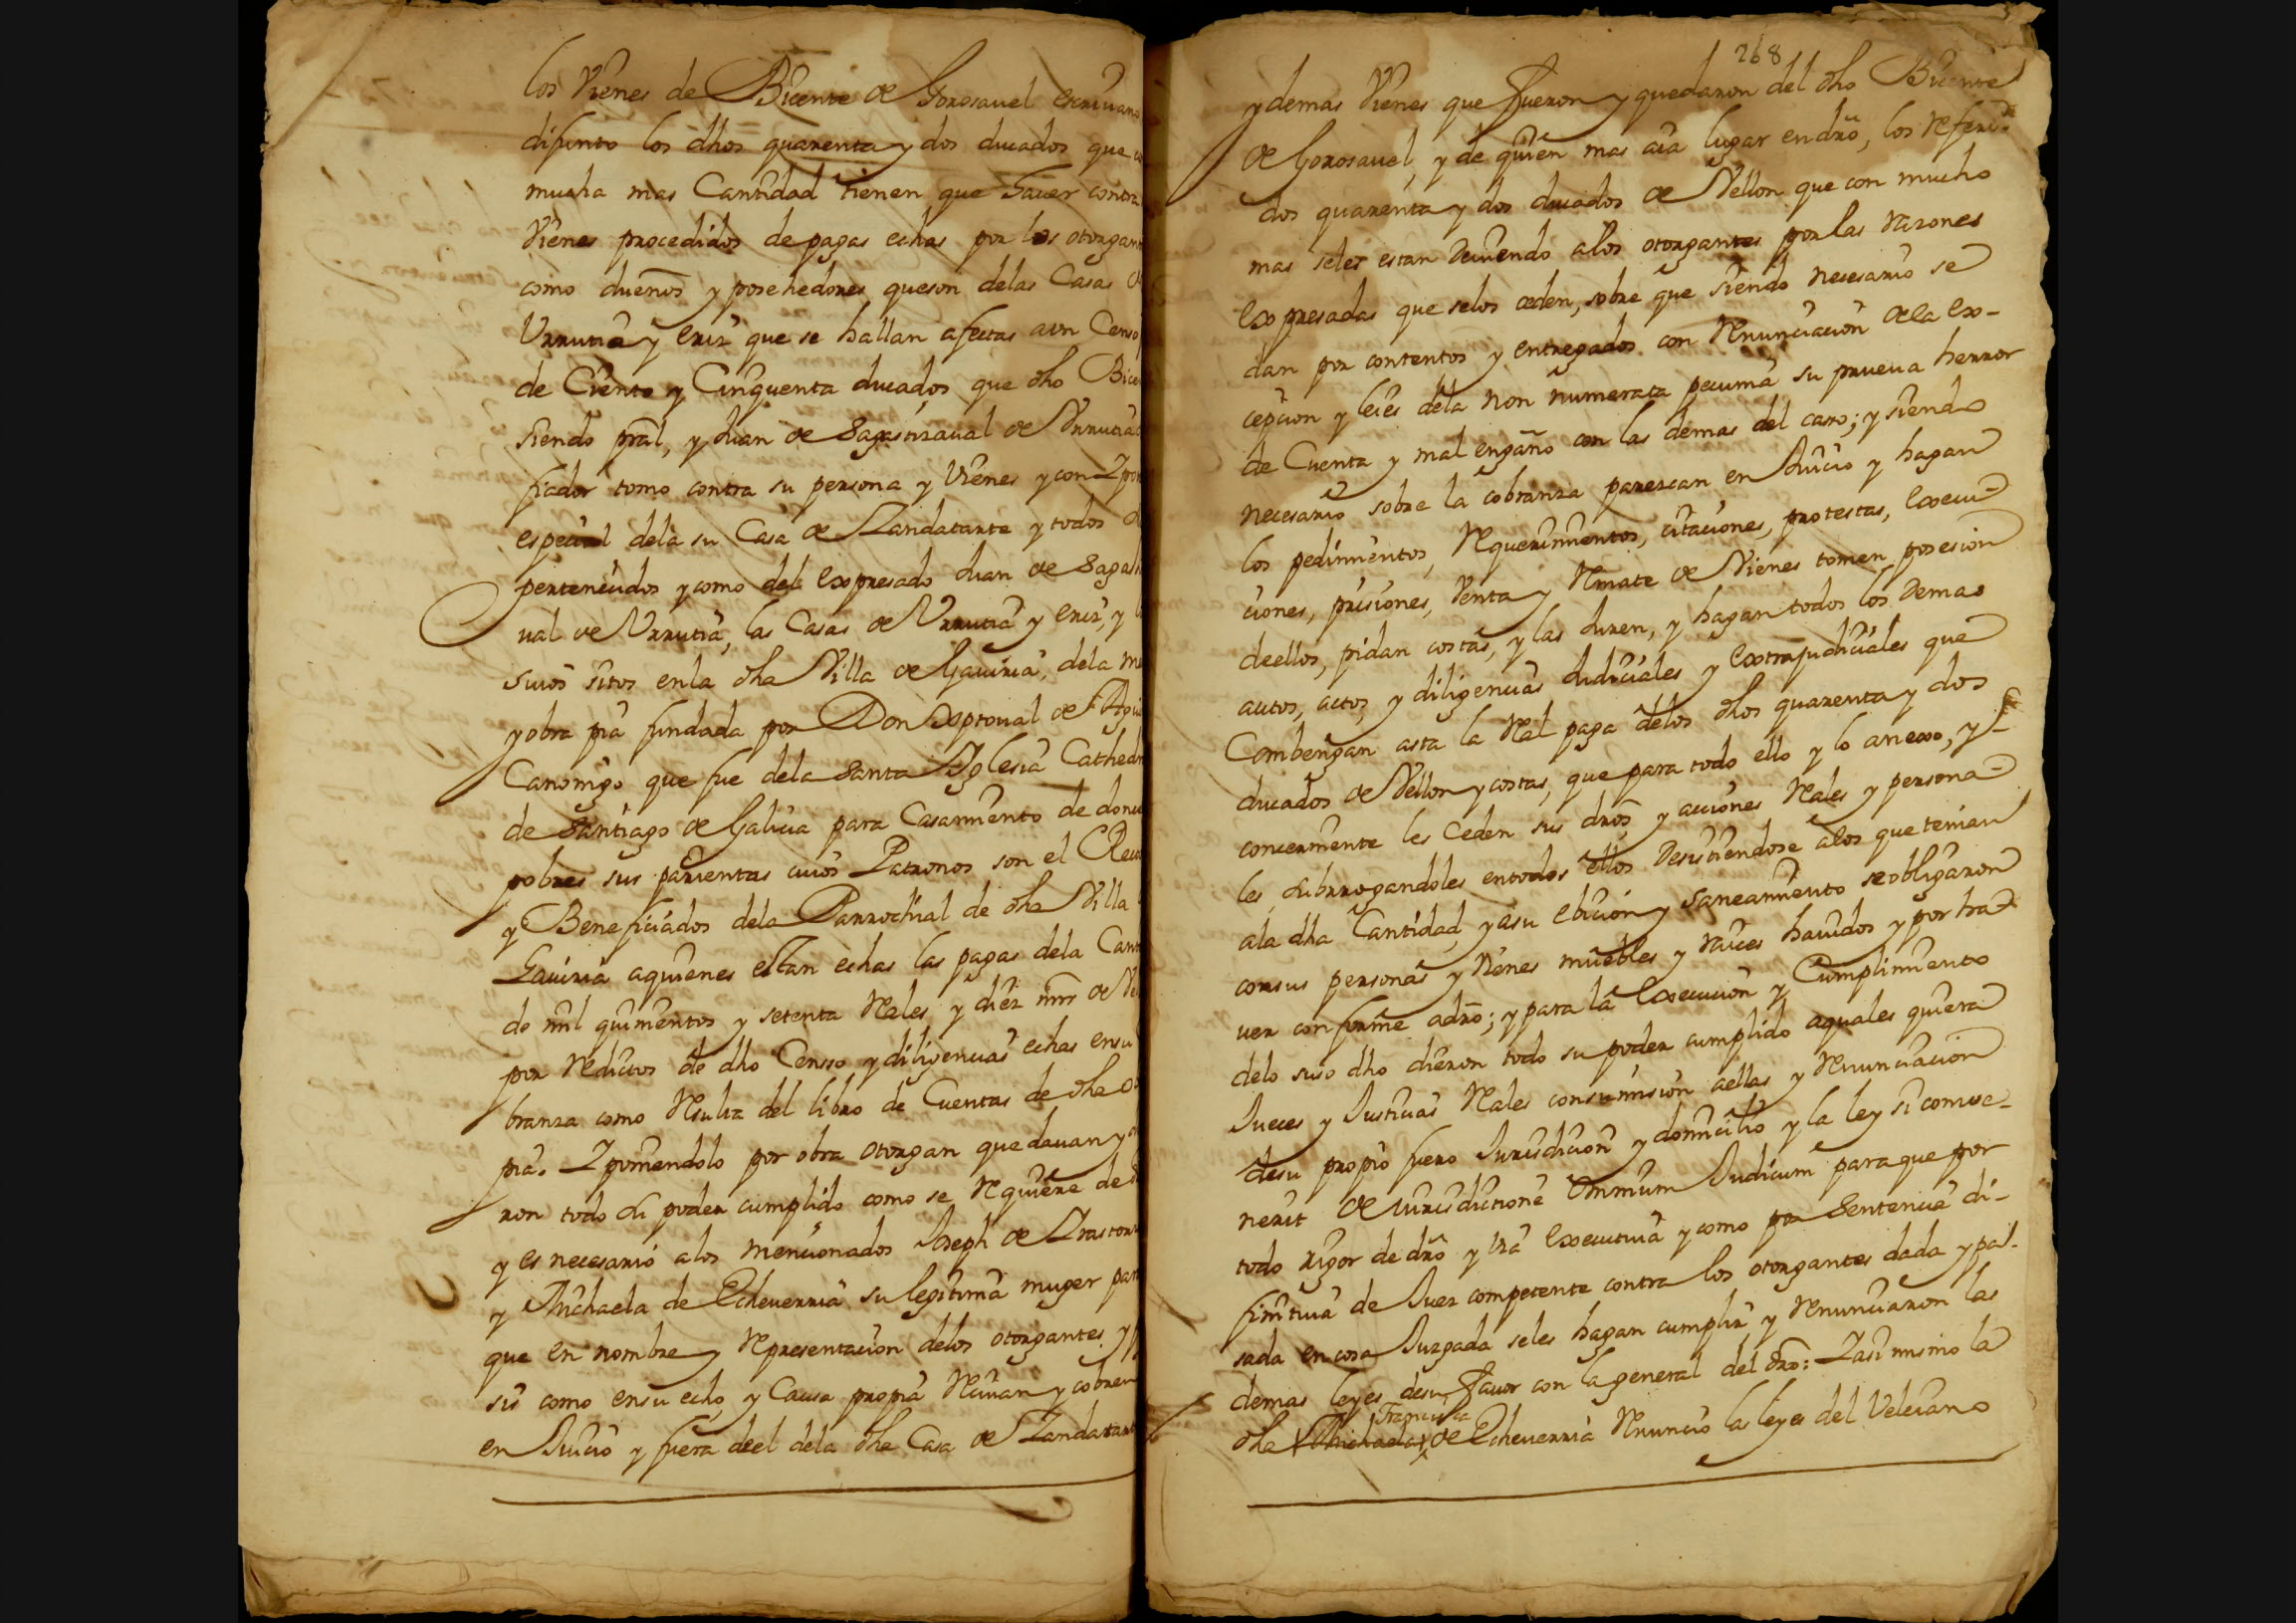 los Vienes de Bicente de Gorosauel escriuano
difunto los dhos quarenta y dos ducados que
mucha mas Cantidad tienen que hauer contra
Vienes procedidos de pagas echas por los otorgan
como dueños y posehedores queson delas Casas
Vrrutia y Eriz que se hallan afectas aun Censo
de Ciento y Cinquenta ducados que dho Bice
siendo pral, y Juan de Sagastizaual de Vrrutia
fiador tomo contra su persona y Vienes y con Zpo
especial dela su Casa de Zandatarte y todos
pertenecidos y como del expresado Juan de Sagas
ual de Vrrutia, las Casas de Vrrutia y Eriz, y
suios sitos enla dha Villa de Gauiria, dela m
y obra pia fundada por Don Xptoual de
Canonigo que fue dela Santa Yglesia Cathed
de Santiago de Galicia para Casamiento de donc
pobres sus parientas cuios Patronos son el Rec
y Beneficiados dela Parrochial de dha Villa
Gauiria aquienes estan echas las pagas dela Can
de mil quinientos y setenta Rales y diez mrs de Ve
por Reditos de dho Censso y diligencias echas ensu
branza como Resulta del libro de Cuentas de dha o
pia. Zponiendolo por obra otorgan que dauan y
ron todo su poder cumplido como se Requiere de
y es necesario alos mencionados Joseph de
y Michaela de Echeuerria su legitima muger par
que en nombre y Representacion delos otorgantes y
si como ensu echo y Causa propia Reciuan y cobren
en Juicio y fuera deel dela dha Casa de Zandatart
268
y demas Vienes que fueron y quedaron del dho Bicente
de Gorosauel, y de quien mas aia lugar endro, los Referi-
dos quarenta y dos ducados de Vellon que con mucho
mas seles estan deuiendo alos otorgantes por las Razones
expresadas que selos ceden, sobre que siendo necesario se
dan por contentos y entregados con Renunciacion dela ex-
cepcion y leies dela non numerata pecunia su prueua herror
de Cuenta y mal engaño con las demas del caso; y siendo
necesario sobre la cobranza parezcan en Juicio y hagan
los pedimientos, Requerimientos, citaciones, protestas, execu-
ciones, prisiones, Venta y Remate de Vienes tomen posesion
deellos, pidan costas, y las Juren, y hagan todos los demas
autos, actos, y diligencias Judiciales y extrajudiciales que
Combengan asta la Real paga delos dhos quarenta y dos
ducados de Vellon y costas, que para todo ello y lo anexo, y
concerniente les Ceden sus dros y acciones Rales y persona-
les, subrrogandoles entodos ellos desistiendose alos que tenian
ala dha Cantidad, y asu ebicion y saneamiento se obligaron
consus personas y Vienes muebles y raices hauidos y por ha-
uer conforme adro; y para la execucion y Cumplimiento
delo suso dho dieron todo su poder cumplido aquales quiera
Jueces y Justicias Rales consumision aellas y Renunciacion
desu propio fuero Jurisdicion y domicilio y la ley si comve-
nerit de Jurisdictione omnium Judicum para que por
todo rigor de dro y via executiua y como por Sentencia di-
finitiua de Juez competente contra los otorgantes dada y pa-
sada en cosa Juzgada seles hagan cumplir y Renunciaron las
demas leyes desu fauor con la general del dro: Zasi mismo la
Francisca
dha Michaela de Echeuerria Renuncio las leyes del Veleiano